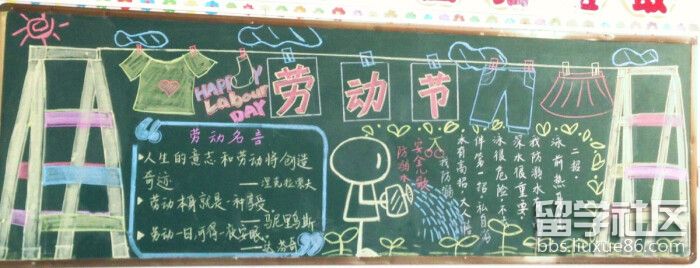 HAPPY
Labour
DAY
劳动节
劳动名言
人生的意志和劳动将创造
奇迹
——涅克拉索夫
劳动本身就是一种享受
——马尼里乌斯
劳动一日,可得一夜安眠
——达芬奇
防溺水
安全儿歌
二招:
泳前热
我防溺水有
深水很重要
泳很危险,不
件第一招:私自
水有高招,大人
我防溺
留学社区
bbs.liuxue86.com